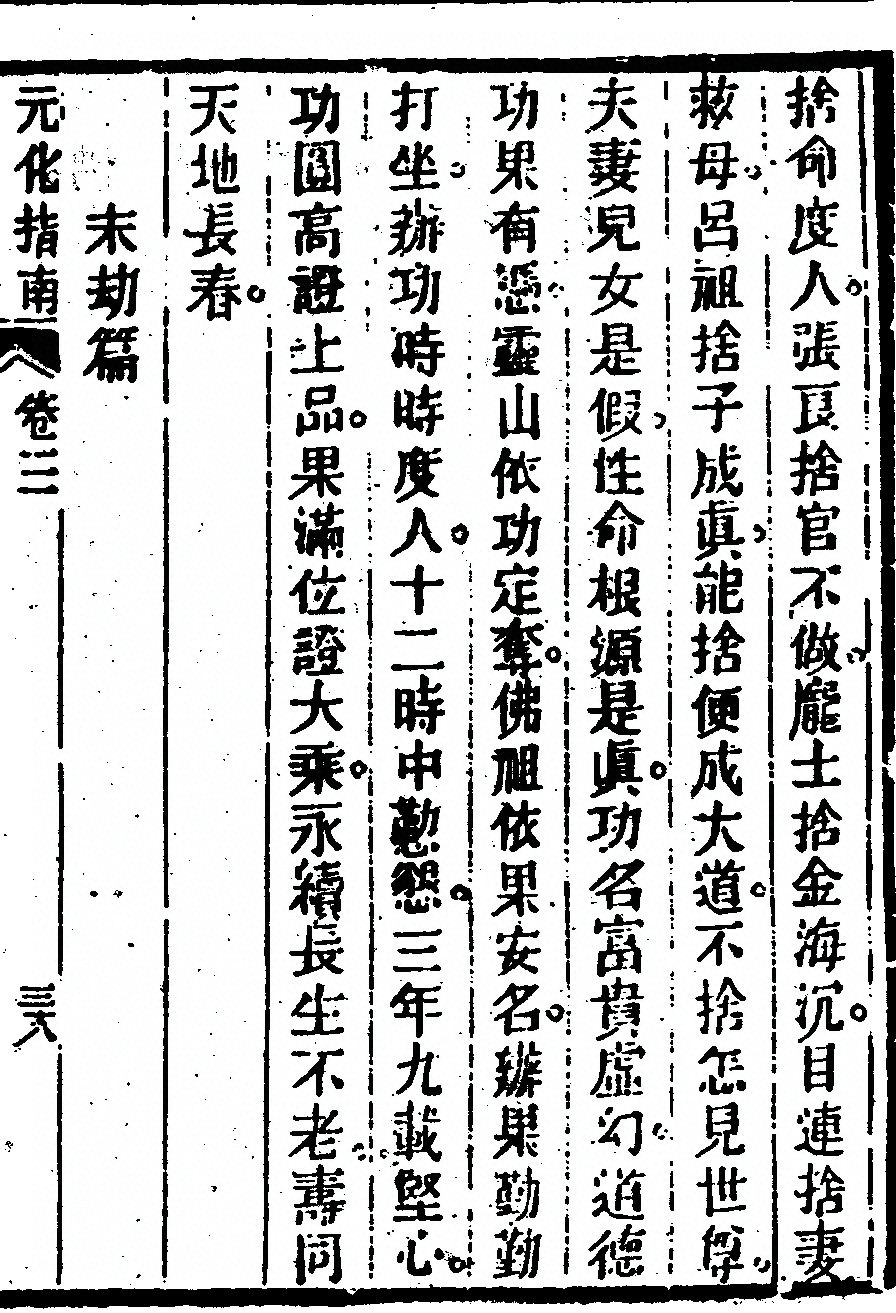 捨命度人。張良捨官不做。龐士捨金海沉。目連捨妻
救母。呂祖捨子成眞。能捨便成大道。不捨怎見世尊。
夫妻兒女是假。性命根源是眞。功名富貴虛幻。道德
功果有憑。靈山依功定奪。佛祖依果安名。辦果勤勤
打坐。辦功時時度人。十二時中懃懇。三年九載堅心。
功圓高證上品。果滿位證大乘。永續長生不老。壽同
天地長春。
末劫篇
元化指南 卷三 三六